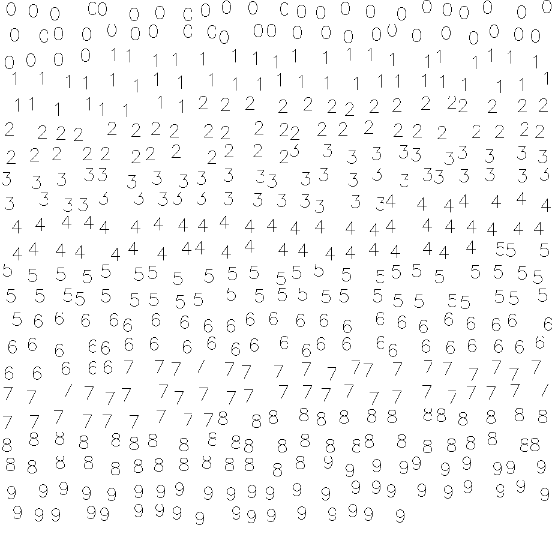 0 0 0 00 0 0 0 0 0 0 0 0 0 0 0 0 0 0 0 0 0 0 0
0 00 0 0 0 0 0 00 00 0 0 0 0 0 0 0 0 0 0 0 0
0 0 0 0 1 1 1 1 1 1 1 1 1 1 1 1 1 1 1 1 1 1 1 1
1 1 1 1 1 1 1 1 1 1 1 1 1 1 1 1 1 1 1 1 1 1 1 1
1 1 1 1 1 1 1 1 2 2 2 2 2 2 2 2 2 2 2 2 2 2 2
2 2 2 2 2 2 2 2 2 2 2 2 2 2 2 2 2 2 2 2 2 2 2
2 2 2 2 2 2 2 2 2 2 2 2 3 3 3 3 3 3 3 3 3 3 3
3 3 3 3 3 3 3 3 3 3 3 3 3 3 3 3 3 3 3 3 3 3 3 3
3 3 3 3 3 3 3 3 3 3 3 3 3 3 3 3 3 4 4 4 4 4 4
4 4 4 4 4 4 4 4 4 4 4 4 4 4 4 4 4 4 4 4 4 4 4 4
4 4 4 4 4 4 4 4 4 4 4 4 4 4 4 4 4 4 4 4 5 5 5
5 5 5 5 5 5 5 5 5 5 5 5 5 5 5 5 5 5 5 5 5 5 5 5
5 5 5 5 5 5 5 5 5 5 5 5 5 5 5 5 5 5 5 5 5 5 5 5
5 6 6 6 6 6 6 6 6 6 6 6 6 6 6 6 6 6 6 6 6 6 6
6 6 6 6 6 6 6 6 6 6 6 6 6 6 6 6 6 6 6 6 6 6 6
6 6 6 6 6 7 7 7 7 7 7 7 7 7 7 7 7 7 7 7 7 7 7
7 7 7 7 7 7 7 7 7 7 7 7 7 7 7 7 7 7 7 7 7 7 7
7 7 7 7 7 7 7 7 7 8 8 8 8 8 8 8 8 8 8 8 8 8 8
8 8 8 8 8 8 8 8 8 8 8 8 8 8 8 8 8 8 8 8 8 8 8 8
8 8 8 8 8 8 8 8 8 8 8 8 8 9 9 9 9 9 9 9 9 9 9
9 9 9 9 9 9 9 9 9 9 9 9 9 9 9 9 9 9 9 9 9 9 9 9
9 9 9 9 9 9 9 9 9 9 9 9 9 9 9 9